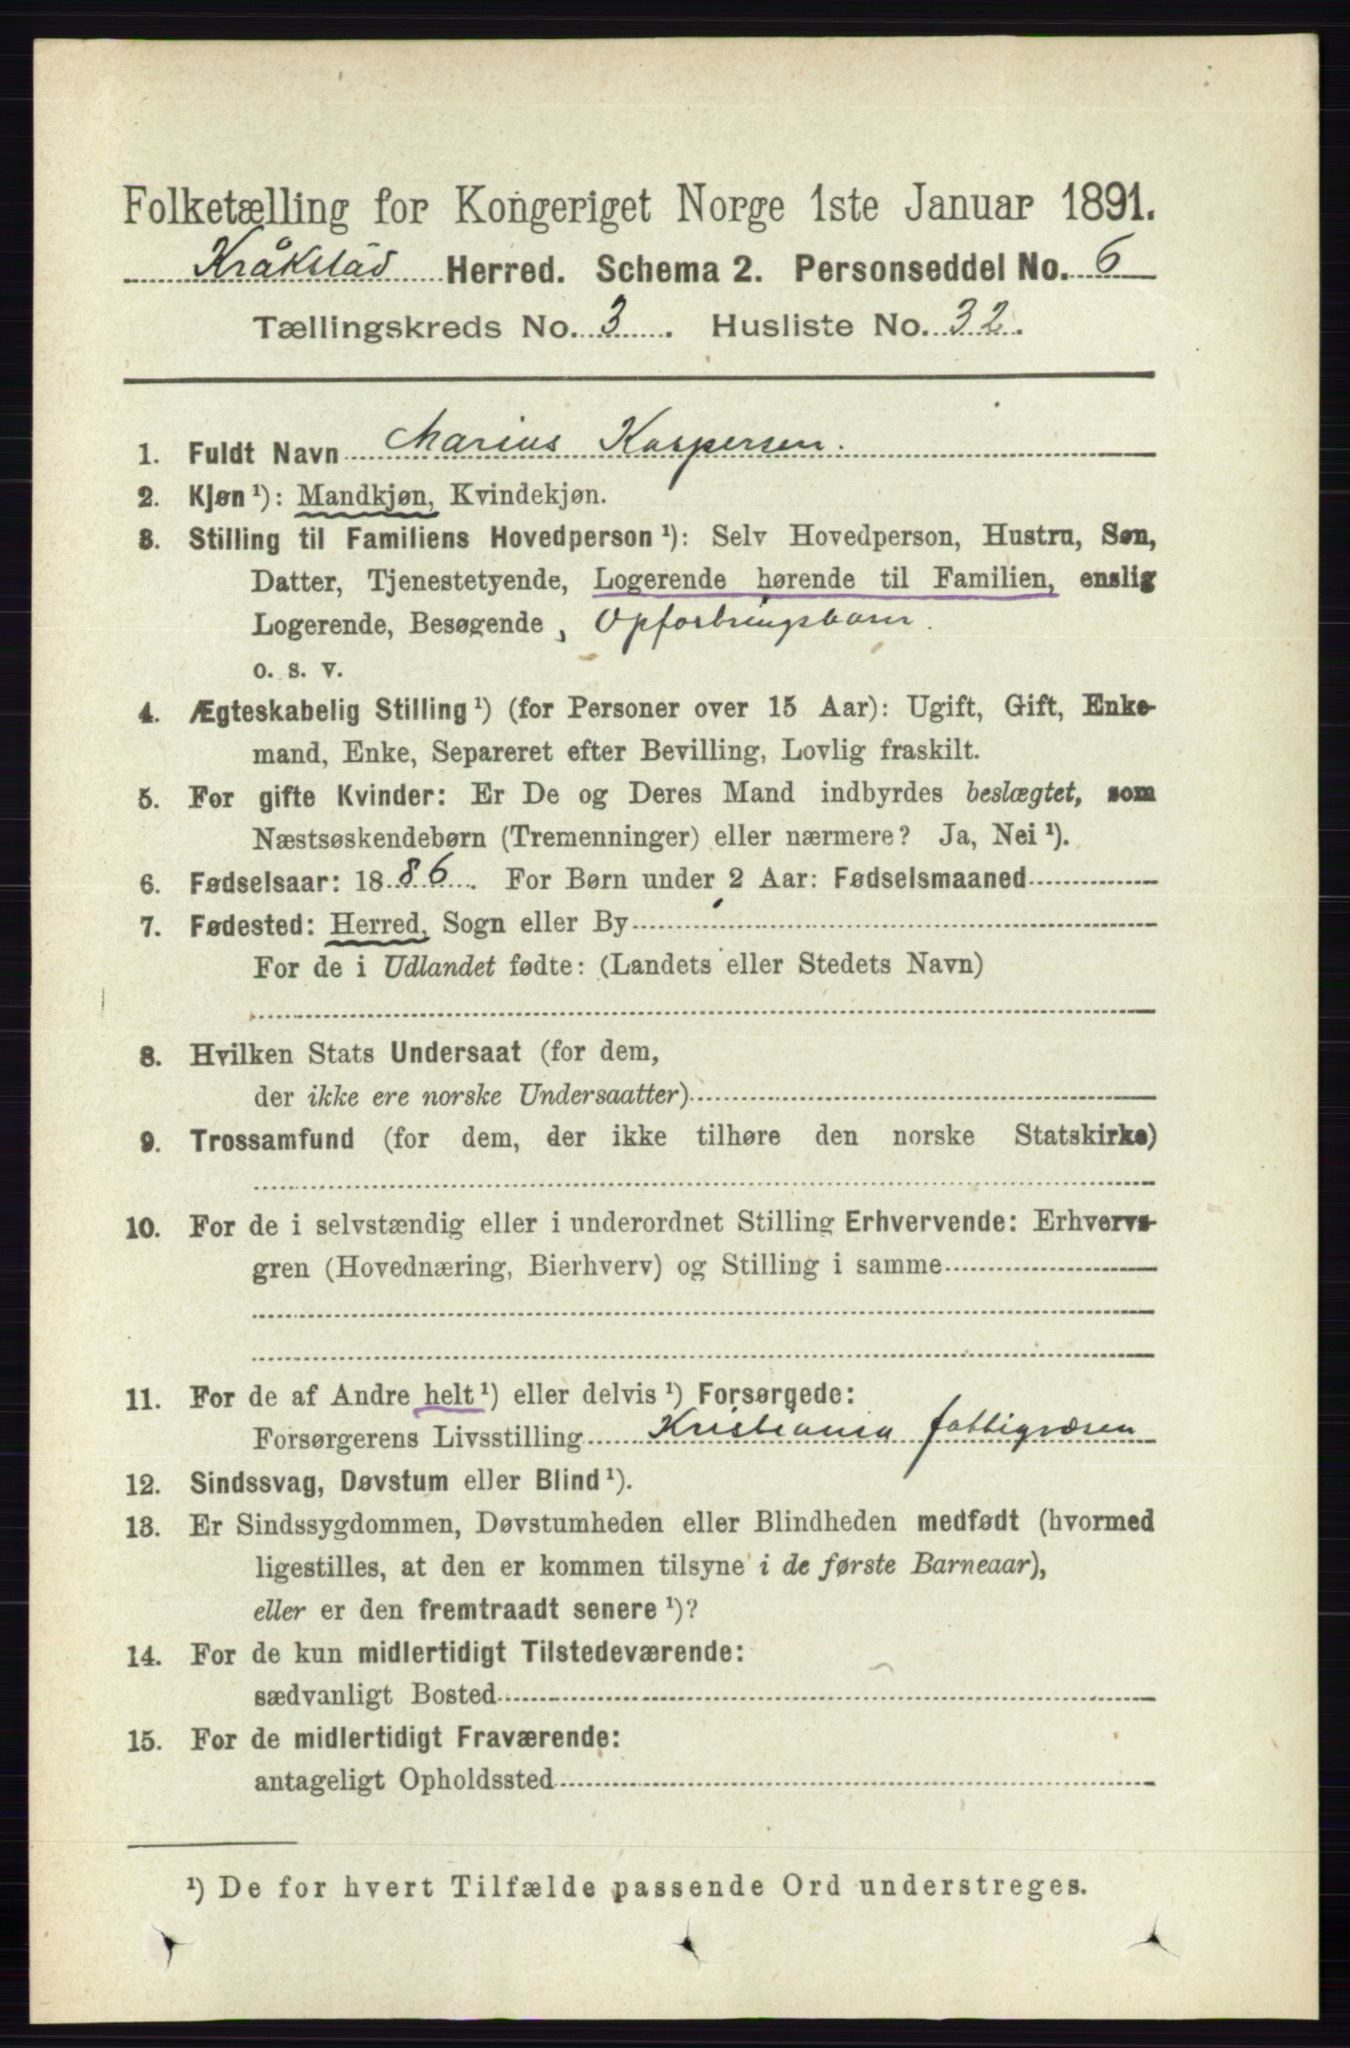 Folketælling for Kongeriget Norge 1ste Januar 1891.
Kråkstad Herred. Schema 2. Personseddel No. 6
Tællingskreds No. 3. Husliste No. 32.
1. Fuldt Navn Marius Kaspersen.
2. Kjøn ¹): Mandkjøn, Kvindekjøn.
3. Stilling til Familiens Hovedperson ¹): Selv Hovedperson, Hustru, Søn,
Datter, Tjenestetyende, Logerende hørende til Familien, enslig
Logerende, Besøgende, Opfostringsbarn.
o. s. v.
4. Ægteskabelig Stilling ¹) (for Personer over 15 Aar): Ugift, Gift, Enke-
mand, Enke, Separeret efter Bevilling, Lovlig fraskilt.
5. For gifte Kvinder: Er De og Deres Mand indbyrdes beslægtet, som
Næstsøskendebørn (Tremenninger) eller nærmere? Ja, Nei ¹).
6. Fødselsaar: 1886. For Børn under 2 Aar: Fødselsmaaned
7. Fødested: Herred, Sogn eller By
For de i Udlandet fødte: (Landets eller Stedets Navn)
8. Hvilken Stats Undersaat (for dem,
der ikke ere norske Undersaatter)
9. Trossamfund (for dem, der ikke tilhøre den norske Statskirke)
10. For de i selvstændig eller i underordnet Stilling Erhvervende: Erhvervs-
gren (Hovednæring, Bierhverv) og Stilling i samme
11. For de af Andre helt ¹) eller delvis ¹) Forsørgede:
Forsørgerens Livsstilling Kristiania fattigvæsen
12. Sindssvag, Døvstum eller Blind ¹).
13. Er Sindssygdommen, Døvstumheden eller Blindheden medfødt (hvormed
ligestilles, at den er kommen tilsyne i de første Barneaar),
eller er den fremtraadt senere ¹)?
14. For de kun midlertidigt Tilstedeværende:
sædvanligt Bosted
15. For de midlertidigt Fraværende:
antageligt Opholdssted
¹) De for hvert Tilfælde passende Ord understreges.